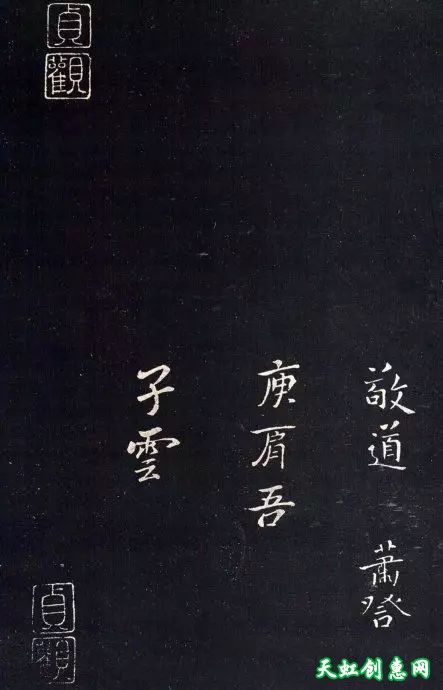 敬道 蕭
庾肩吾
子雲
貞觀
貞觀
天虹创惠网